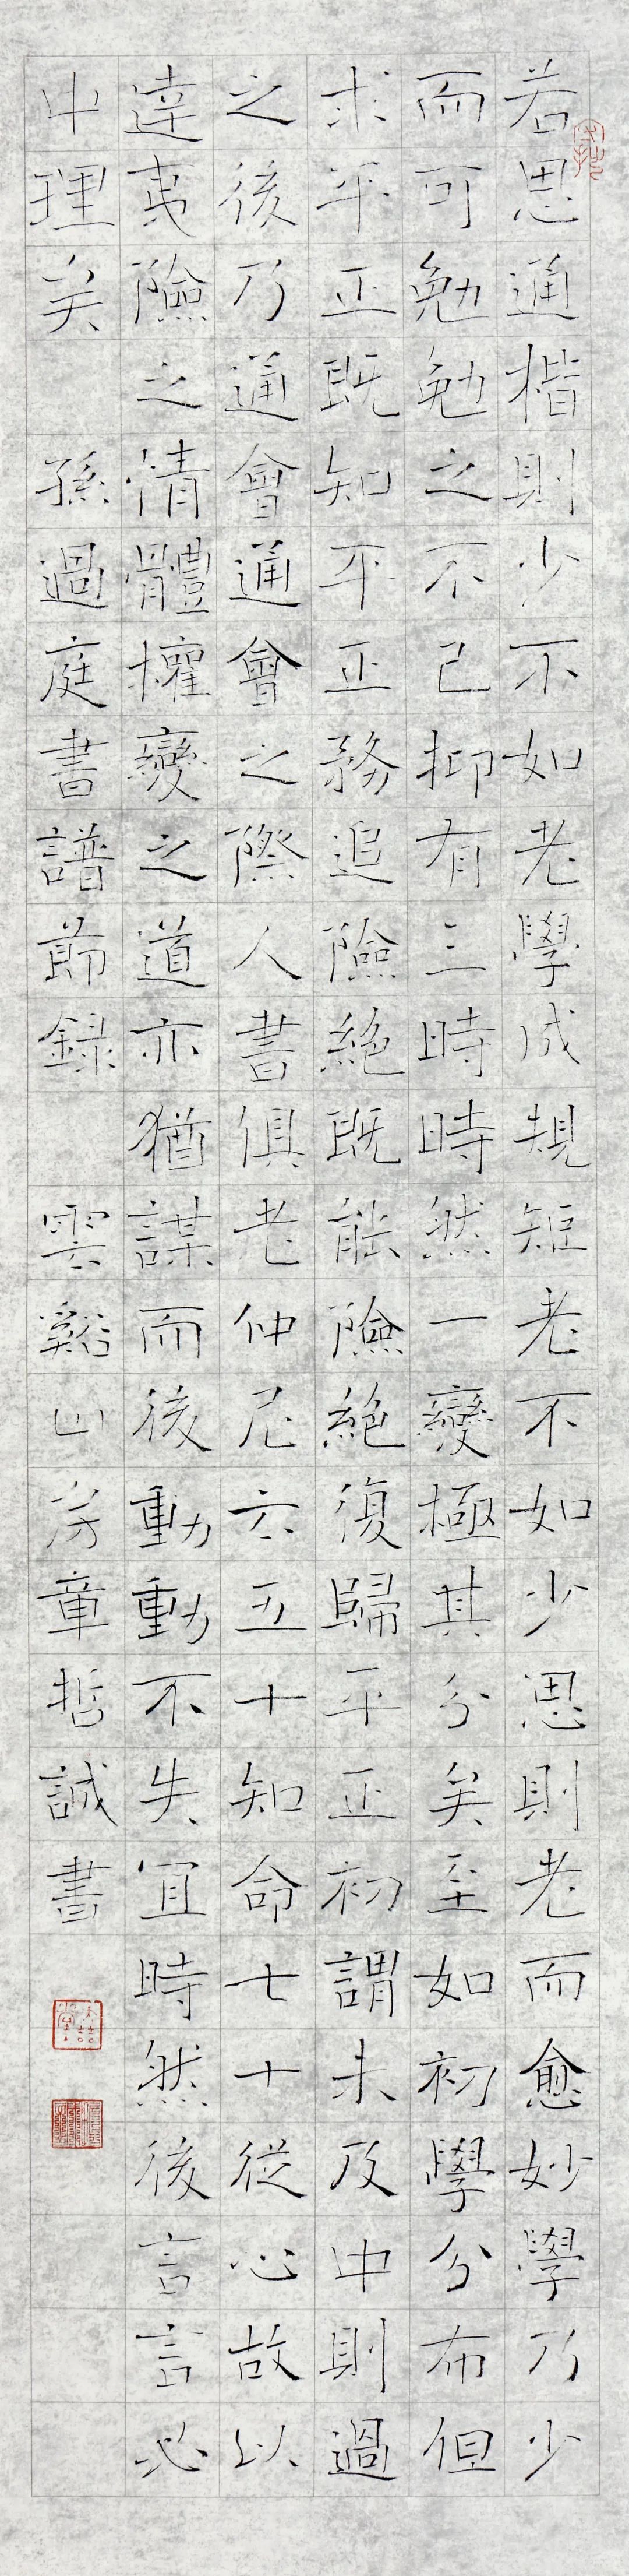 若思通楷則少不如老學成規矩老不如少思則老而愈妙學乃少
而可勉勉之不已抑有三時時然一變極其分矣至如初學分布但
求平正既知平正務追險絕既能險絕復歸平正初謂未及中則過
之後乃通會通會之際人書俱老仲尼云五十知命七十從心故以
達夷險之情體權變之道亦猶謀而後動動不失宜時然後言言必
中理矣 孫過庭書譜節錄 雲谿山房章哲誠書